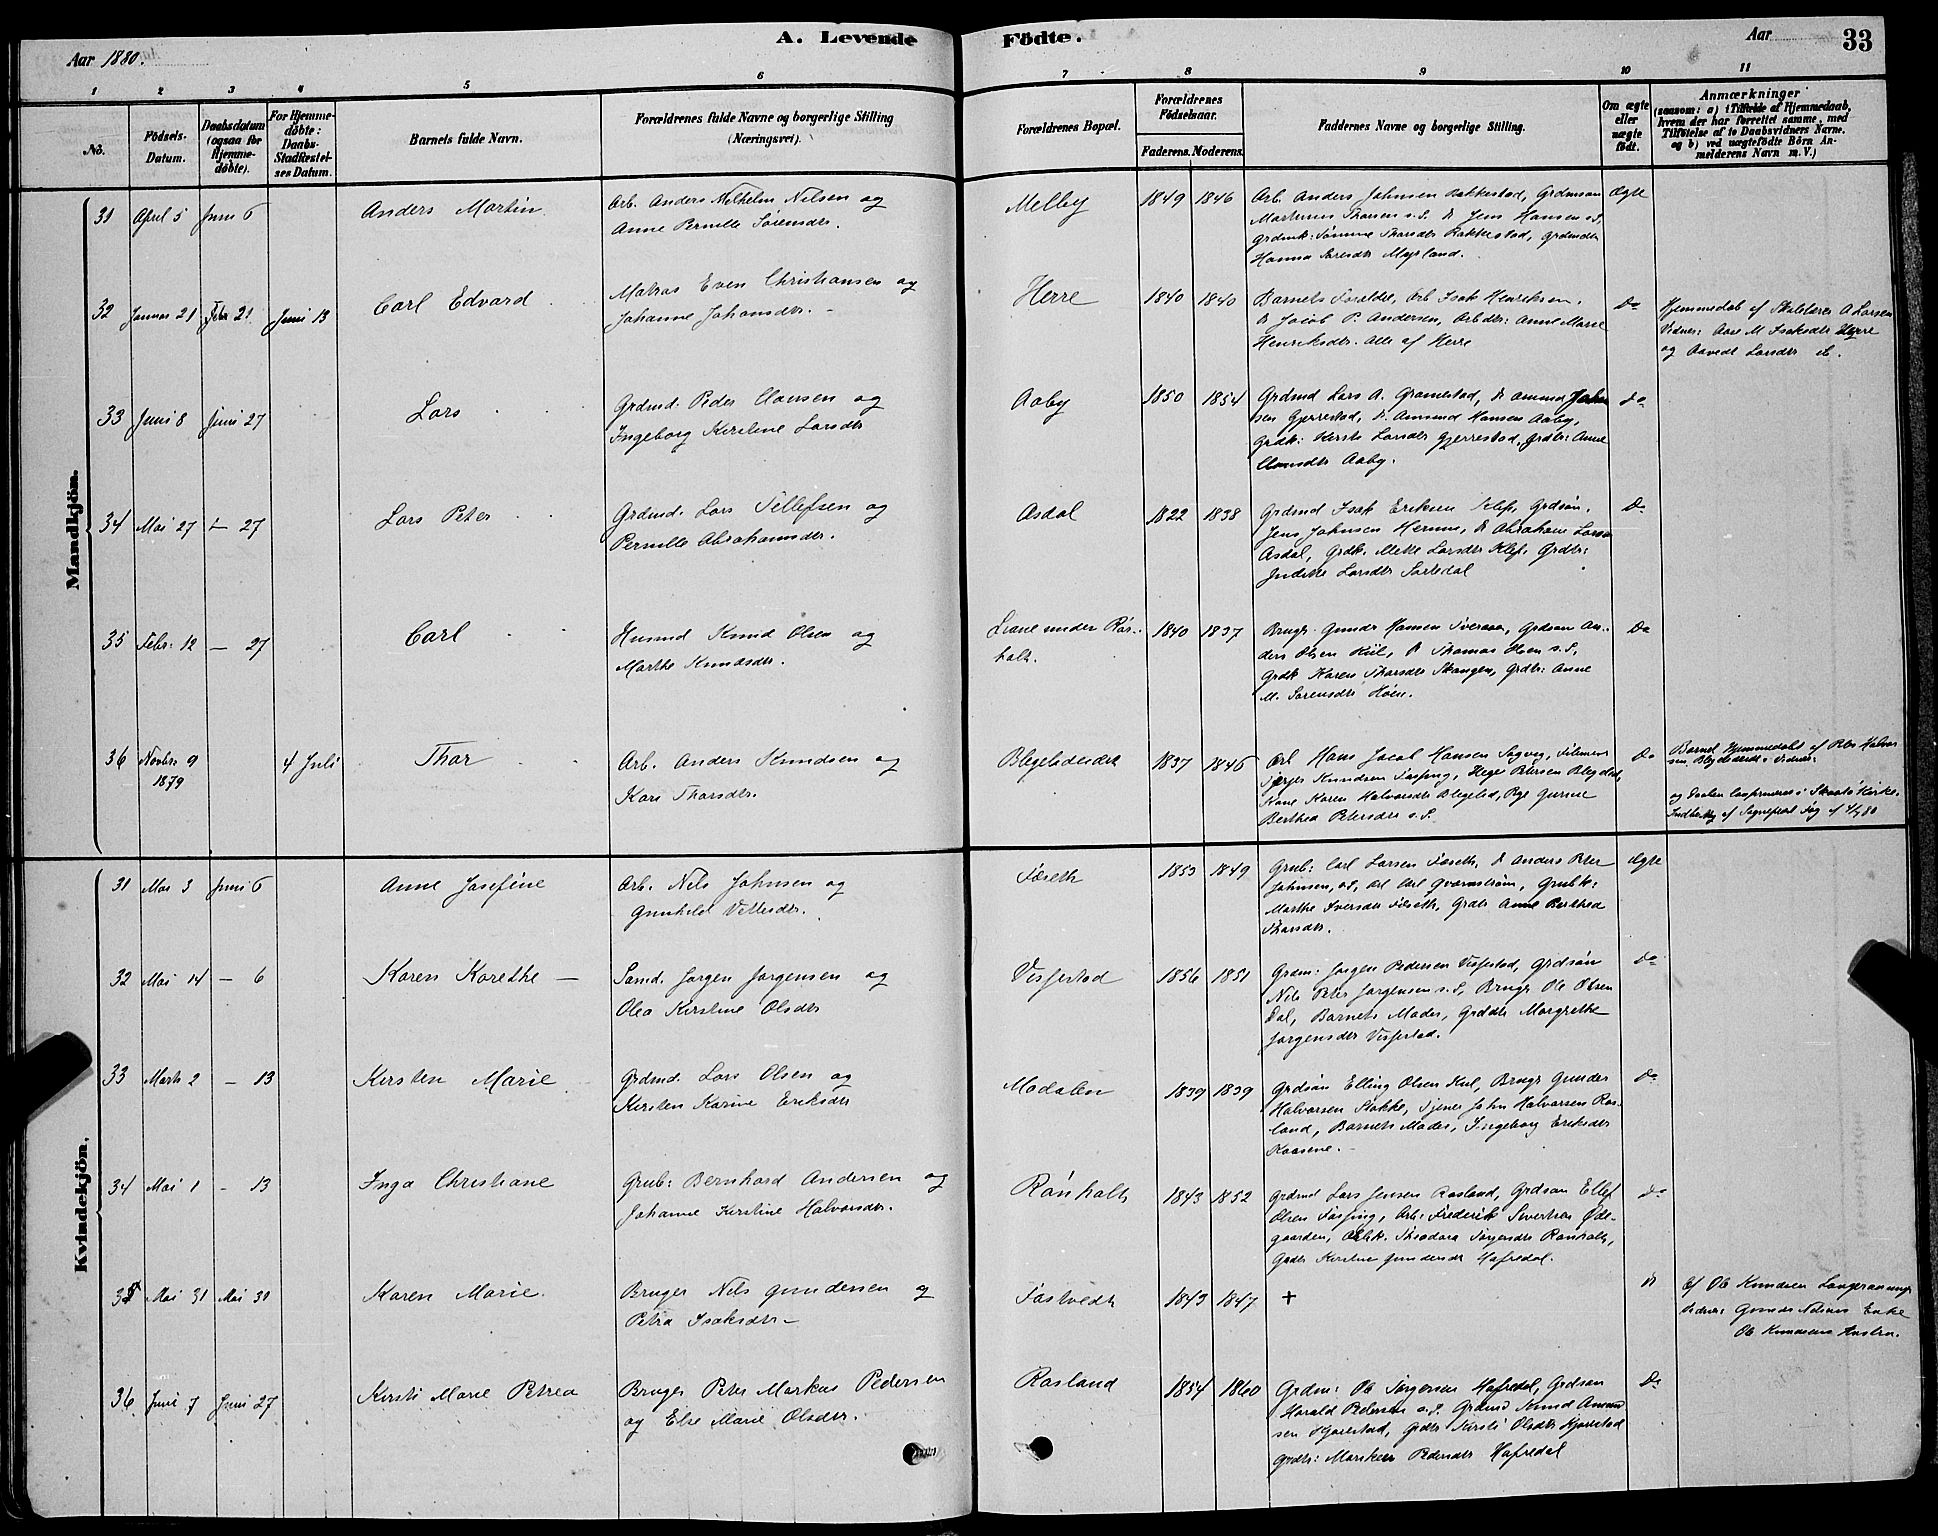 A. Levende Födte.
Aar 1880.
Aar
33
1 2 3 4 5 6 7 8 9 10 11
No.
Födsels-Datum.
Daabsdatum (ogsaa for Hjemmedöbte).
For Hjemmedöbte: Daabs-Stadfæstelses Datum.
Barnets fulde Navn.
Forældrenes fulde Navne og borgerlige Stilling (Næringsvei).
Forældrenes Bopæl.
Forældrenes Födselsaar.
Faderens. Moderens.
Faddernes Navne og borgerlige Stilling.
Om ægte eller uægte födt.
Anmærkninger
(saasom: a) i Tilfælde af Hjemmedaab, hvem der har forrettet samme, med Tilföielse af to Daabsvidners Navne. og b) ved uægtefödte Börn Anmelderens Navn m. V.)
Mandkjön.
31 April 5 Juni 6 Anders Martin Arb. Anders Wilhelm Nilsen og
Anne Pernille Sörensdr.
Melby 1849 1846 Arb. Anders Johnsen Bakkestad, Grdmsøn
Martinius Thorsen s.S. & Jens Hansen s.S,
Grdmk: Tomine Thorsdr Bakkestad, Grdmdtr
Hanna Sörensdr Myrland.
Ægte
32 Januar 21 Febr 21 Juni 13 Carl Edvard Matros Even Christiansen og
Johanne Johansdr. -
Herre 1840 1840 Barnets Forældre, Arb Isak Henriksen.
& Jacob P. Andersen, Arbdtr: Anne Marie
Henriksdr. Alle af Herre
Do
Hjemmedöb af Skolelærer A Larsen
Vidner: Ane M. Isaksdr Herre
og Aavedt Larsdr ib.
33 Juni 8 Juni 27 Lars Grdmd. Peder Clausen og
Ingeborg Kirstine Larsdr
Aaby 1850 1854 Grdmd Lars A. Gramestad, & Amund John
sen Gjerrestad, & Amund Hansen Aaby,
Grdk: Kirsti Larsdr Gjerrestad, Grdtr: Anne
Clausdtr Aaby.
do
34 Mai 27 - 27 Lars Peter Grdmd. Lars Tellefsen og
Pernille Abrahamsdr.
Asdal 1822 1838 Grdmd Isak Eriksen Klep, Grdsøn.
Jens Johnsen Hernæs, & Abraham Larsen
Asdal, Grdk. Mette Larsdr Klep. Grdtr:
Indikke Larsdr Sortedal
Do
35 Febr: 12 - 27 Carl Husmd Knud Olsen og
Marthe Knudsdr.
Liane under Rör-
holt. 1840 1837 Brugr Gunder Hansen Tveraaen, Grdsøn An-
ders Olsen Kiil, & Thomas Hoen s.S,
Grdk Karen Thorsdr Skougen, Grdtr: Anne
M. Sørensdr Höen.
Do
36 Novbr 9
1879 4 Juli Thor Arb. Anders Knudsen og
Kari Thorsdr.
Blegebdesdr 1837 1846 Arb Hans Jacob Hansen Sagvig,
Terjer Knudsen Fossing, Hege Petersen
Kone Karen Halvorsdr Blegebd, Pige Gurine
Berthea Petersdr s.S.
Do
Barnet Hjemmedöbt af Peter Halvor
sen
og Daaben confirmeret i Skaatö Kirke.
Kvindekjön.
31 Mai 3 Juni 6 Anne Josefine Arb. Nils Johnsen og
Gunhild Vettesdr.
Fosseth 1853 1849 Grub: Carl Larsen Fosseth, & Anders Peter
Johnsen, s.S, Arb Carl Qvarnström, Grubk:
Marthe Iversdr Fosseth, Grdtr Anne Berthea
Thorsdr.
Ægte
32 Mai 14 - 6 Karen Karethe - Sømd. Jørgen Jørgensen og
Olea Kirstine Olsdtr
Vissestad 1856 1851 Grdm: Jørgen Pedersen Vissestad, Grdsøn
Nils Peter Jørgensen s.S, Brugr Ole Olsen
Dal, Barnets Moder, Grddtr Margrethe
Jørgensdr Vissestad.
do
33 Marts 2 - 13 Kirsten Marie Grdmd. Lars Olsen og
Kirsten Karine Eriksdtr
Modalen 1839 1839 Grdsøn Elling Olsen Kiil, Brugr Gunder
Halvorsen Stokke, Tjener John Halvorsen Ros-
land, Barnets Moder, Ingeborg Eriksdtr
Kaasene. -
do
34 Mai 1 - 13 Inga Christiane Grub: Bernhard Andersen og
Johanne Kirstine Halvorsdr.
Rönholt 1843 1852 Grdmd Lars Jensen Rosland, Grdsøn Ellef
Olsen Fossing, Arb: Frederik Sivertsen Öde-
gaarden, Arbk. Theodora Terjesdr Rönholt,
Grdtr Kirstine Gundersdr Hafredal.
do
35 Mai 31 Mai 31 Karen Marie. Bruger Nils Gundersen og
Petra Isaksdr -
Tostvedt 1843 1847 +
Af Ole Knudsen Langeraunngs
Vidner: Gunder Nilsens Enke
Ole Knudsens Hustru.
36 Juni 7 Juni 27 Kirsti Marie Petrea Bruger Peter Markus Pedersen
og Else Marie Olsdtr.
Rosland 1854 1860 Grdm: Ole Torgersen Hafredal, Grdsøn
Harald Pedersen s.S. Grdmd Knud Amund
sen Hjarestad, Grdtr Kirsti Olsdtr Hjarestad
Grdtr: Marikken Pedersdr Hafredal
Do